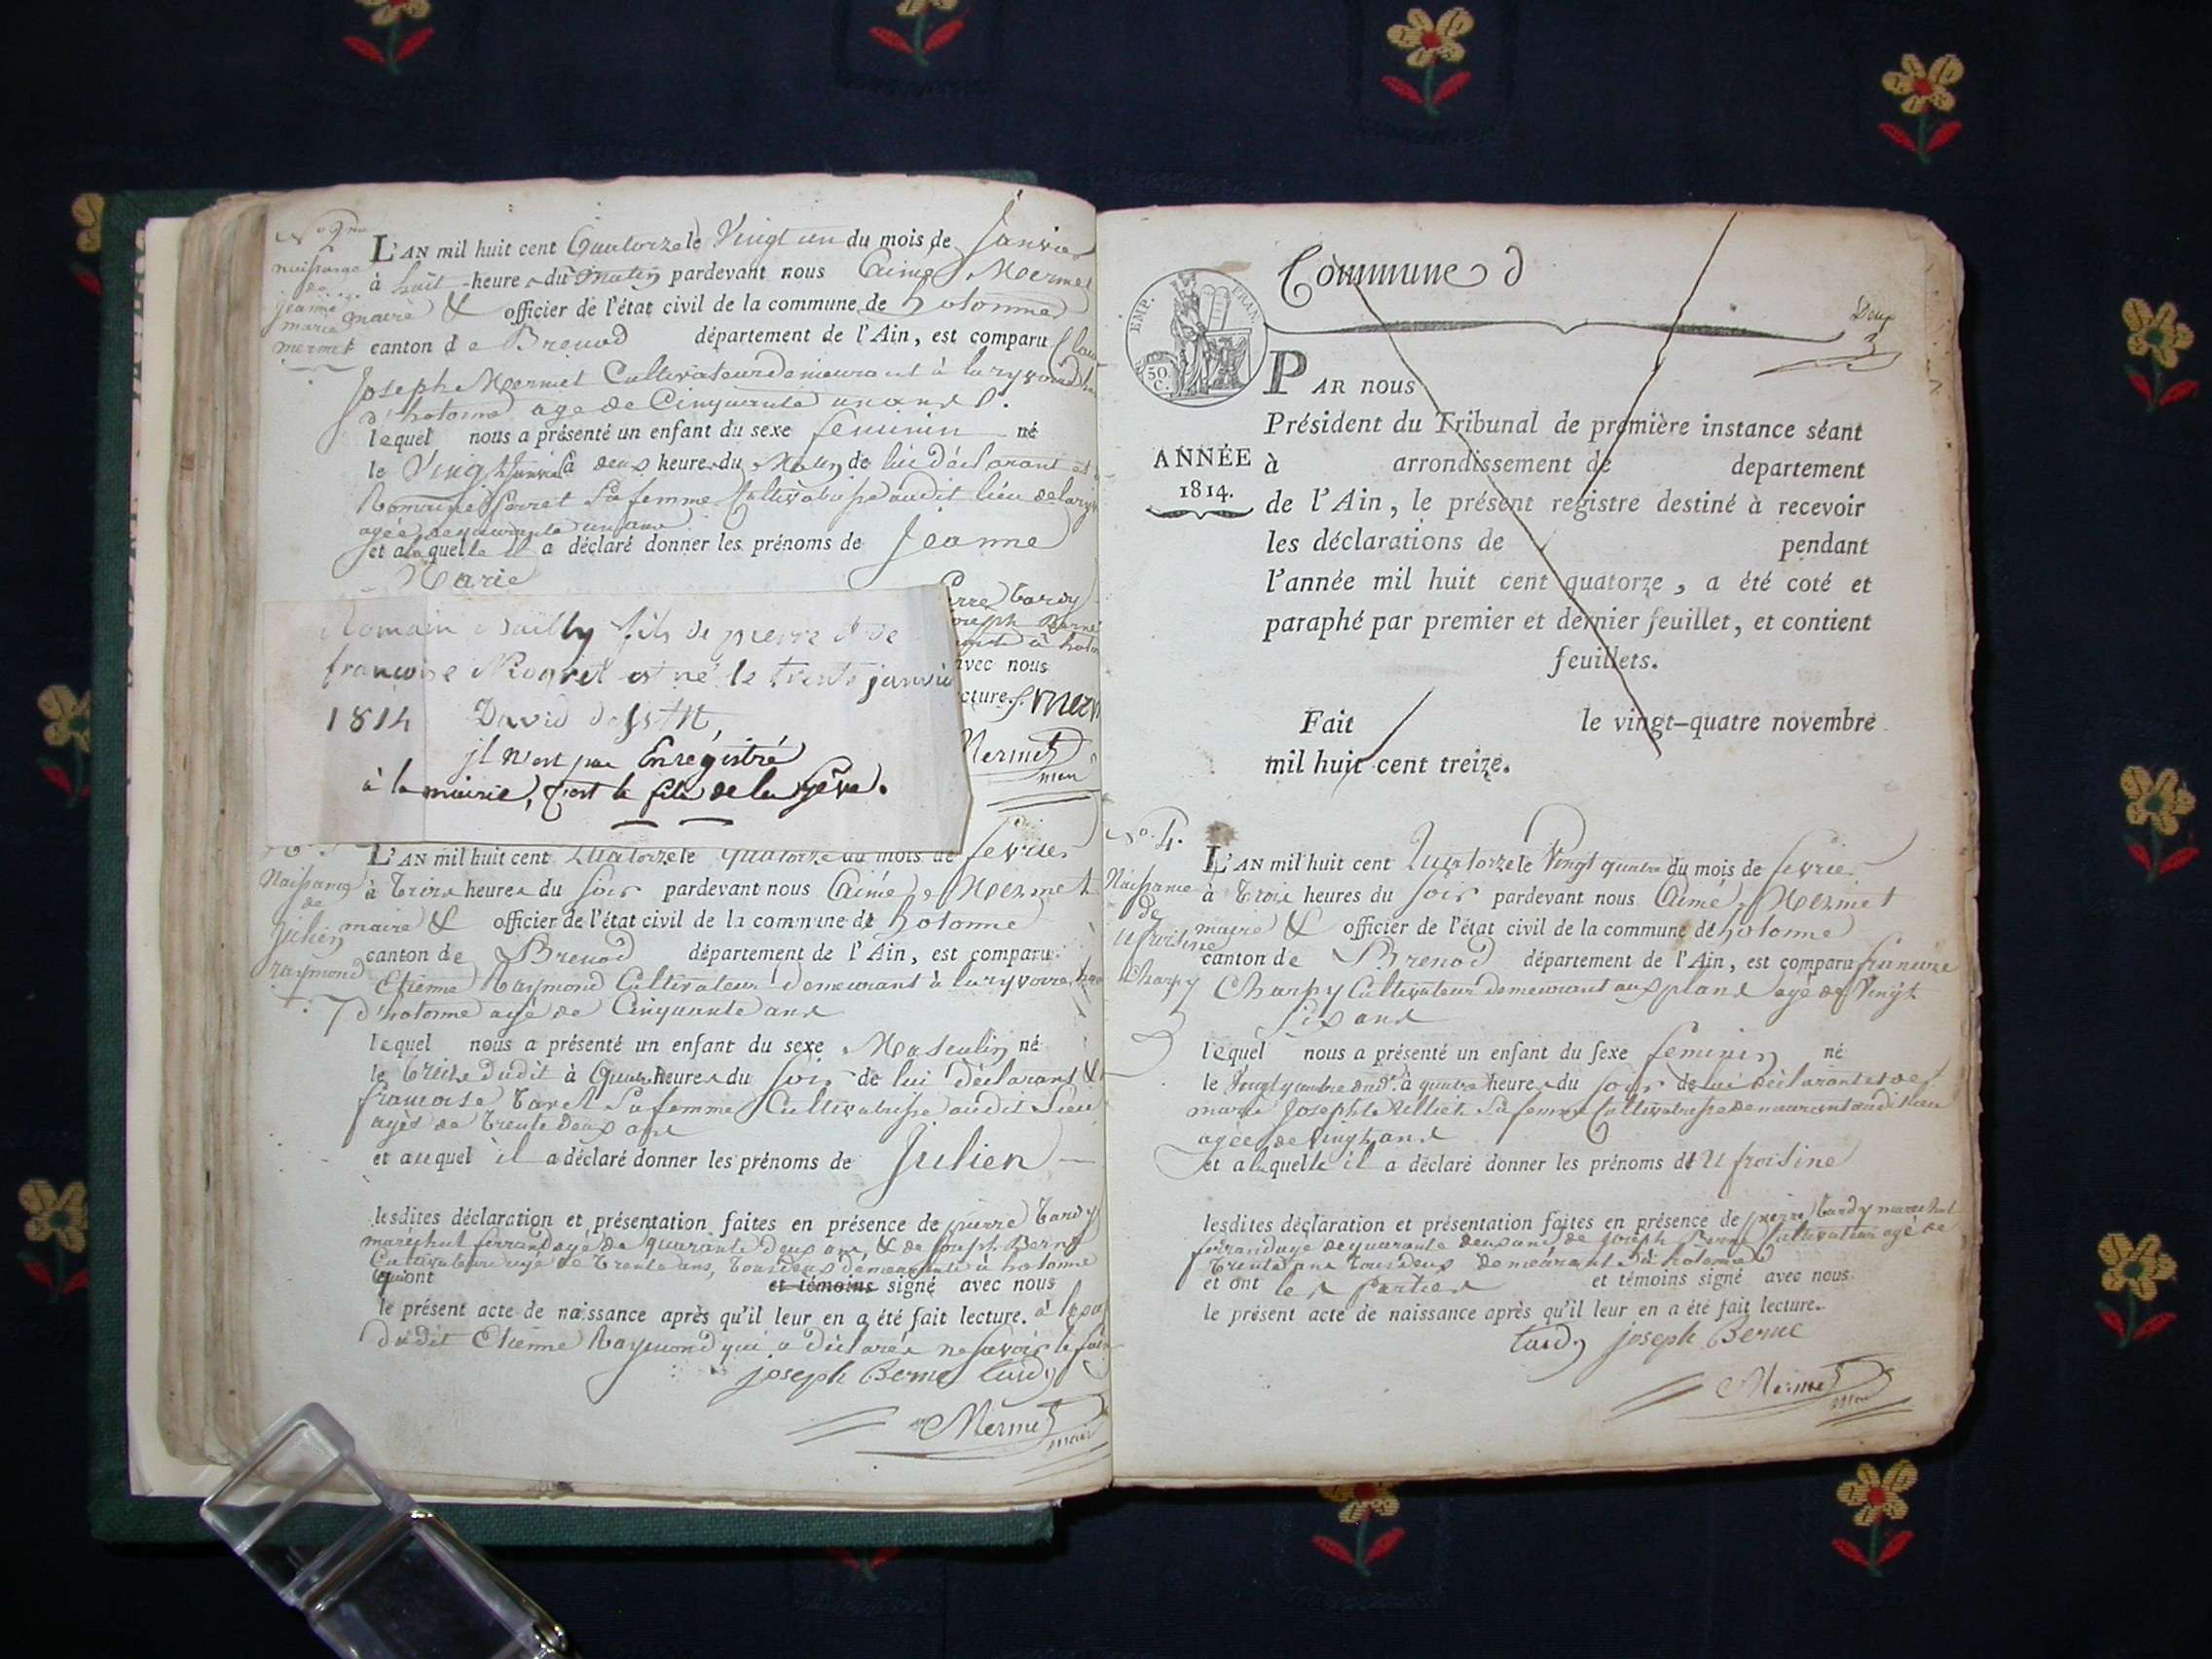 No 2
naissance
de
jeanne
marie
mermet
L'AN mil huit cent Quatorze le Vingt un du mois de Janvier
à huit heures du Matin pardevant nous Aimé Mermet
maire & officier de l'état civil de la commune de hotonne
canton de Brenod département de l'Ain, est comparu
Joseph Mermet Cultivateur demeurant à
d'hotonne agé de Cinquante un ans
lequel nous a présenté un enfant du sexe feminin né
le Vingt Janvier à deux heures du Matin de lui déclarant et
Romaine Serret Sa femme Cultivatrisse audit lieu
agée de quarante un ans
et a laquelle il a déclaré donner les prénoms de Jeanne
Marie
Tardy
joseph Berne
avec nous
Mermet
maire
Romain Bailly fils de pierre & de
françoise est né le trente janvier
1814 David
il n'est pas Enregistré
à la mairie, c'est le fils de la
Naissance
de
Julien
raymond
L'AN mil huit cent Quatorze le quatorze du mois de fevrier
à Trois heures du soir pardevant nous Aimé Mermet
maire & officier de l'état civil de la commune de hotonne
canton de Brenod département de l'Ain, est comparu
Etienne Raymond Cultivateur demeurant à
d'hotonne agé de Cinquante ans
lequel nous a présenté un enfant du sexe Masculin né
le Treize dudit à Quatre heures du soir de lui déclarant &
francoise Sa femme Cultivatrisse audit Lieu
agée de Trente Deux ans
et auquel il a déclaré donner les prénoms de Julien
lesdites déclaration et présentation faites en présence de pierre Tardy
maréchal ferrand agé de quarante deux ans, & de Joseph Berne
Cultivateur agé de Trente ans, tous deux demeurants à hotonne
qui ont et témoins signé avec nous
le présent acte de naissance après qu'il leur en a été fait lecture.
dudit Etienne Raymond qui a déclaré ne savoir le faire
joseph Berne tardy
Mermet
maire
Commune d
Deux
EMP. FRAN.
50.
C.
PAR nous
Président du Tribunal de première instance séant
ANNÉE
1814.
à arrondissement de departement
de l'Ain, le présent registre destiné à recevoir
les déclarations de pendant
l'année mil huit cent quatorze, a été coté et
paraphé par premier et dernier feuillet, et contient
feuillets.
Fait le vingt-quatre novembre
mil huit cent treize.
No. 4.
Naissance
de
Ufroisine
Charpy
L'AN mil huit cent Quatorze le Vingt quatre du mois de fevrier
à Trois heures du soir pardevant nous Aimé Mermet
maire & officier de l'état civil de la commune de hotonne
canton de Brenod département de l'Ain, est comparu
Charpy Cultivateur demeurant aux plans agé de Vingt
Six ans
lequel nous a présenté un enfant du sexe feminin né
le Vingt quatre à quatre heures du soir de lui déclarant et de
marie Josephte Sa femme Cultivatrisse demeurant audit lieu
agée de Vingt ans
et a laquelle il a déclaré donner les prénoms de Ufroisine
lesdites déclaration et présentation faites en présence de pierre Tardy marechal
ferrand agé de quarante deux ans de joseph Berne Cultivateur agé de
Trente ans tous deux demeurants à hotonne
et ont les parties et témoins signé avec nous
le présent acte de naissance après qu'il leur en a été fait lecture.
tardy joseph Berne
Mermet
maire